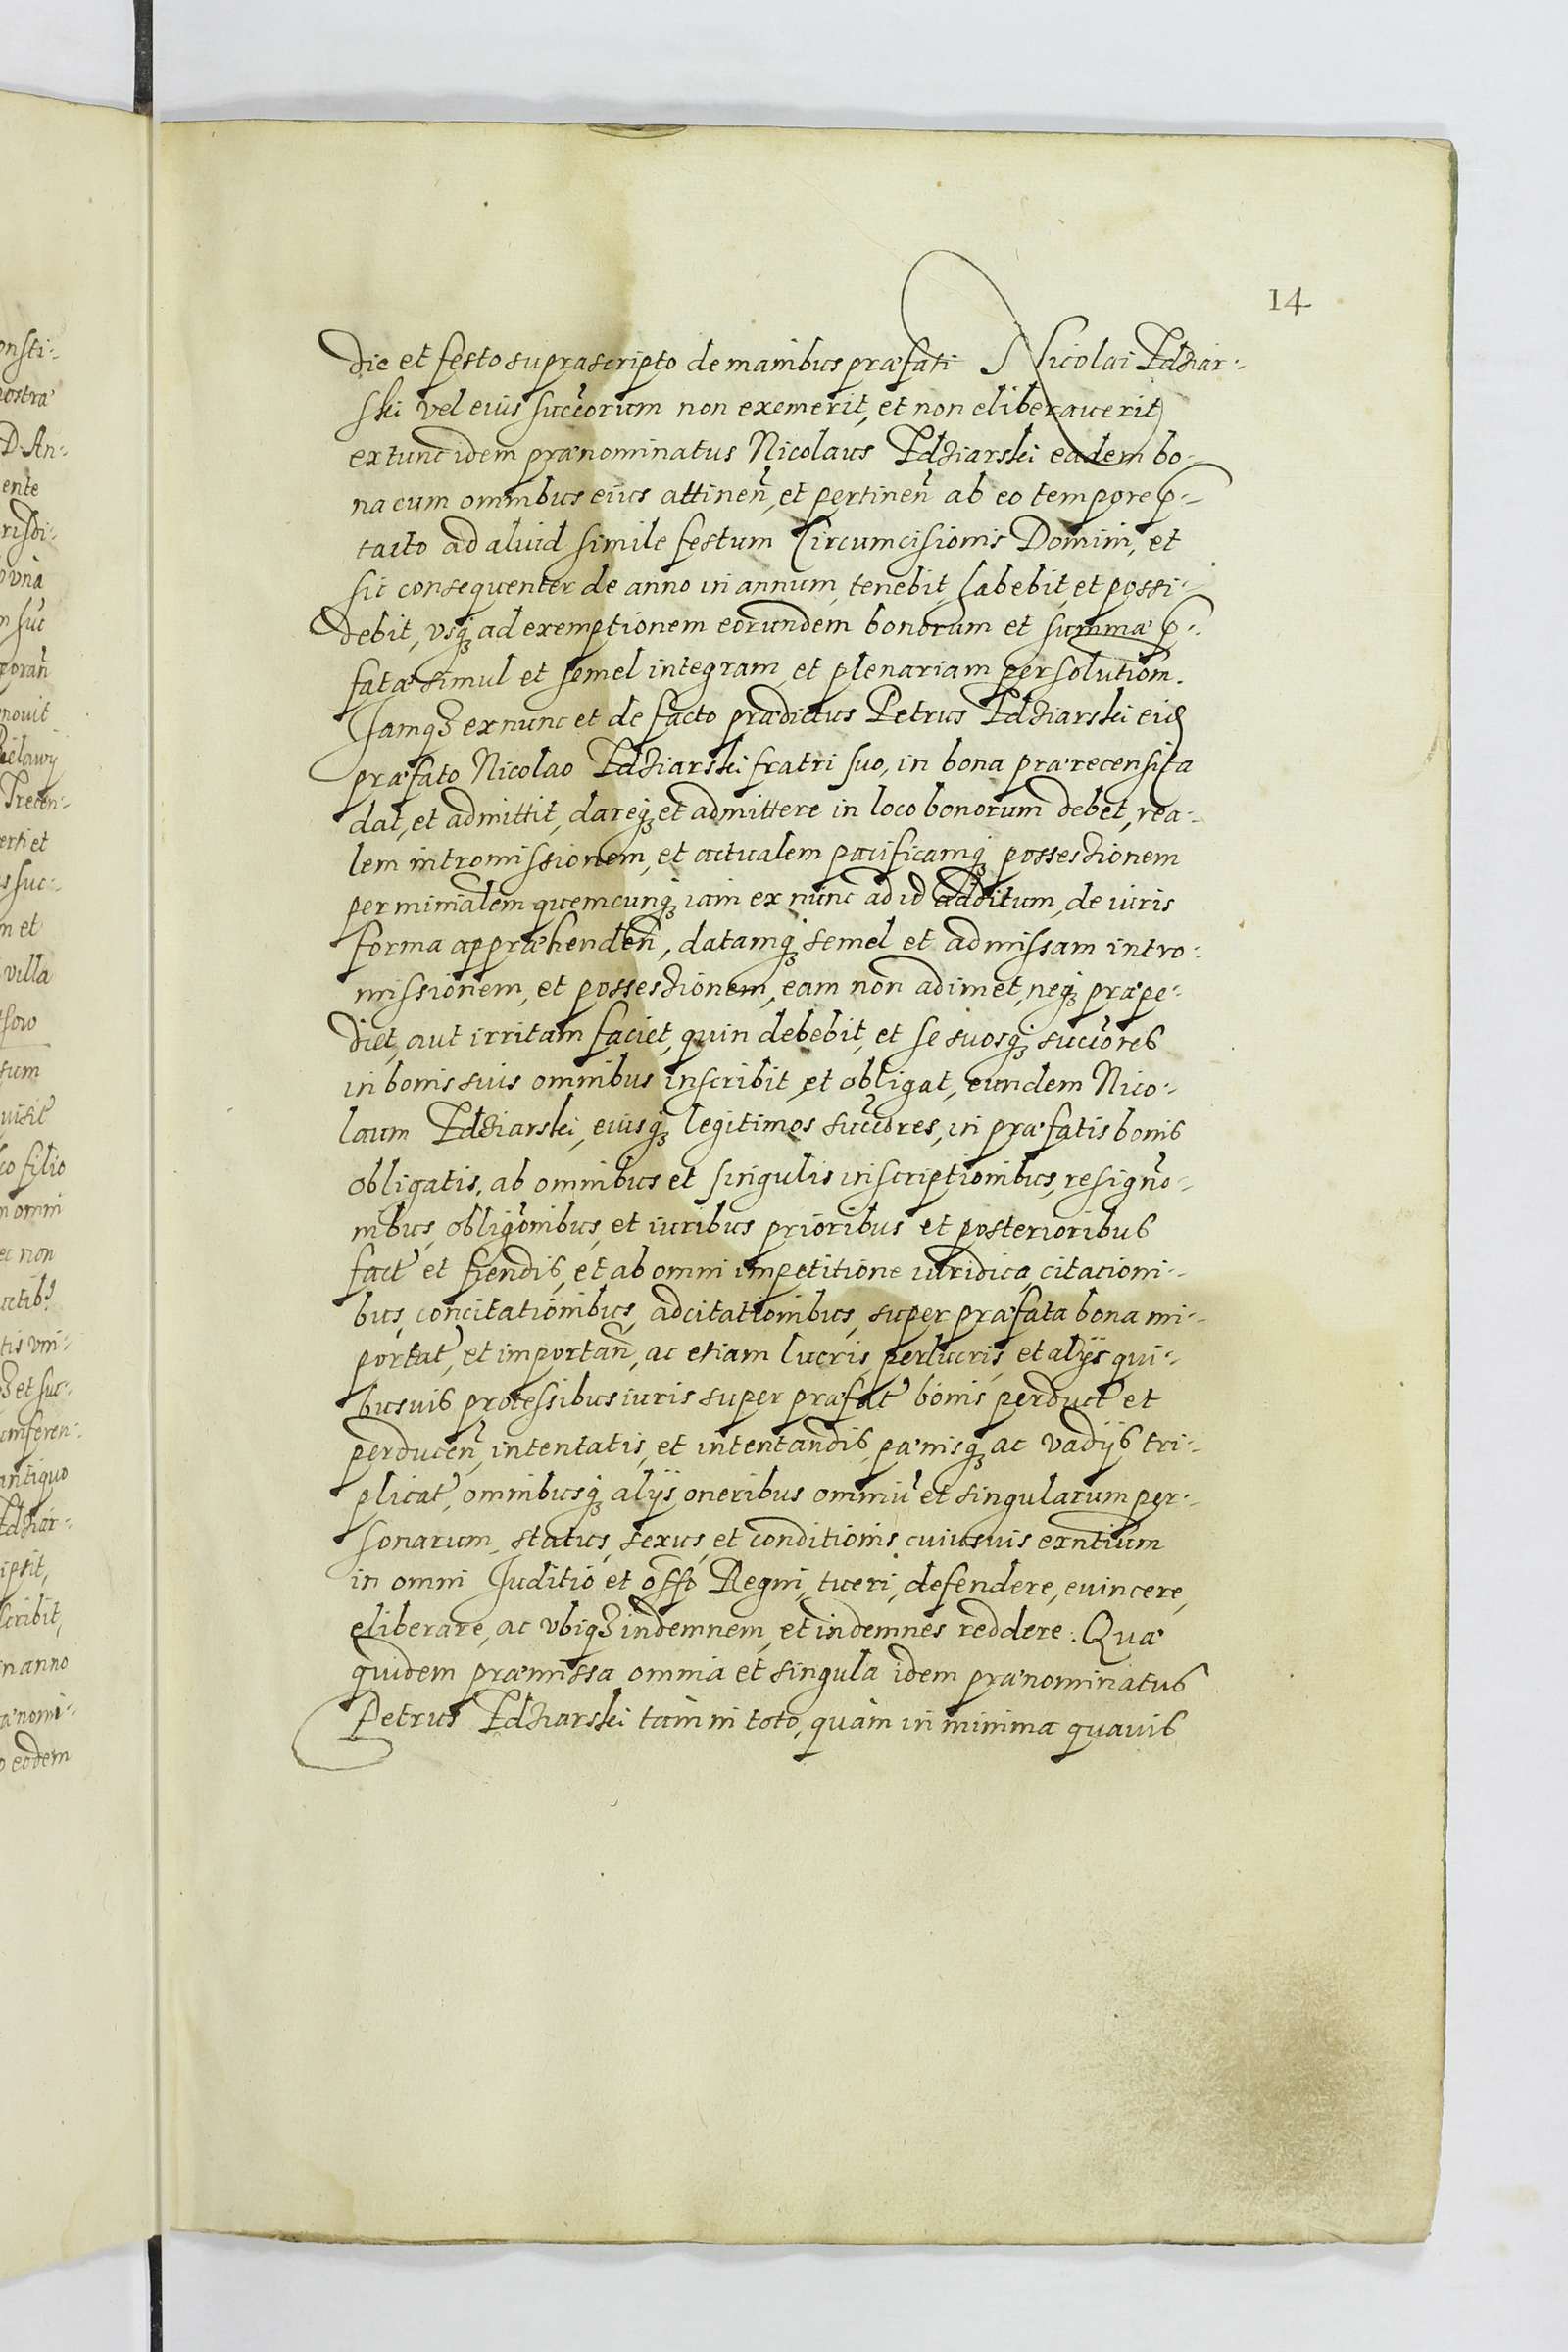 14
die et festo suprascripto de manibus præfati Nicolai Idziar-
ski vel eius succorum non exemerit, et non eliberauerit
extunc idem prænominatus Nicolaus Idziarski eadem bo-
na cum omnibus eius attinen, et pertinen ab eo tempore p-
tacto ad aliud simile festum Circumcisionis Domini, et
sic consequenter de anno in annum, tenebit, habebit, et possi-
debit, vsq ad exemptionem eorundem bonorum et summæ p-
fatæ simul et semel integram et plenariam persolution.
Iamq ex nunc et de facto prædictus Petrus Idziarski eid
præfato Nicolao Idziarski fratri suo, in bona prærecensita
dat, et admittit, dareq et admittere in loco bonorum debet, rea-
lem intromissionem, et actualem pacificamq possessionem
per minālem quemcunq iam ex nunc ad id additum, de iuris
forma appræhenden, datamq semel et admissam intro-
missionem, et possessionem, eam non adimet, neq præpe-
diet, aut irritam faciet, quin debebit, et se suosq succores
in bonis suis omnibus inscribit et obligat, eundem Nico-
laum Idziarski, eiusq legitimos succores, in præfatis bonis
obligatis, ab omnibus et singulis inscriptionibus, resigno-
nibus, obligonibus, et iuribus prioribus et posterioribus
fact et fiendis, et ab omni impetitione iuridica, citationi-
bus, concitationibus, adcitationibus, super præfata bona im-
portat, et importan, ac etiam lucris, perlucris, et alijs qui-
busuis processibus iuris super præfat bonis perduct et
perducen, intentatis, et intentandis, pænisq ac vadijs tri-
plicat, omnibusq alijs oneribus omniu et singularum per-
sonarum, status, sexus, et conditionis cuiusuis exntium
in omni Iuditio et offo Regni, tueri, defendere, euincere,
eliberare, ac vbiq indemnem, et indemnes reddere. Quæ
quidem præmissa omnia et singula idem prænominatus
Petrus Idziarski tam in toto, quàm in minima quauis